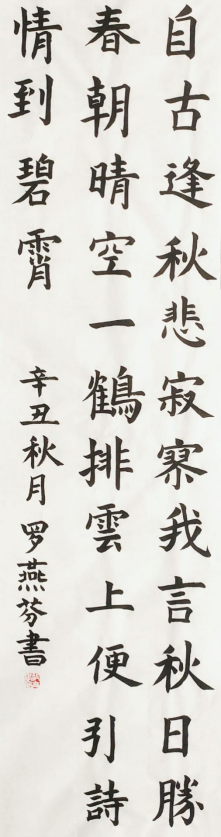 自古逢秋悲寂寞我言秋日勝
春朝晴空一鶴排雲上便引詩
情到碧霄
辛丑秋月罗燕芬書